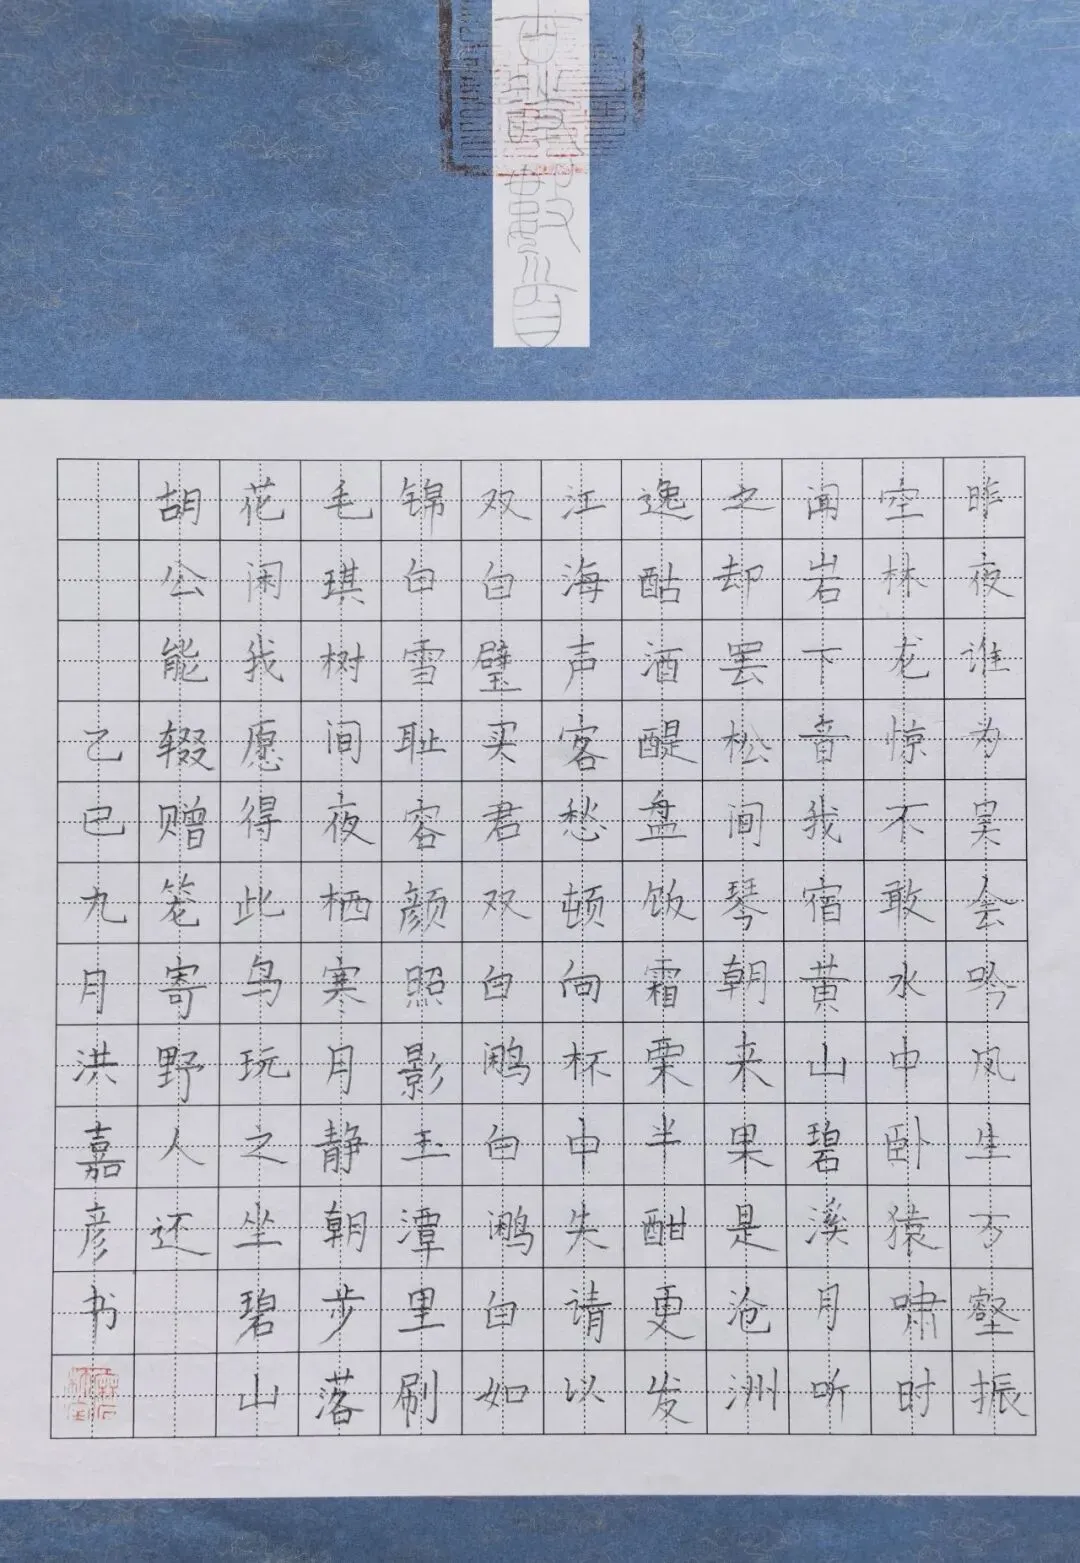 昨夜谁为吴会吟风生万壑振
空林龙惊不敢水中卧猿啸时
闻岩下音我宿黄山碧溪月听
之却罢松间琴朝来果是沧洲
逸酤酒醍盘饭霜栗半酣更发
江海声客愁顿向杯中失请以
双白璧买君双白鹇白鹇白如
锦白雪耻容颜照影玉潭里刷
毛琪树间夜栖寒月静朝步落
花闲我愿得此鸟玩之坐碧山
胡公能辍赠笼寄野人还
己巳九月洪嘉彦书